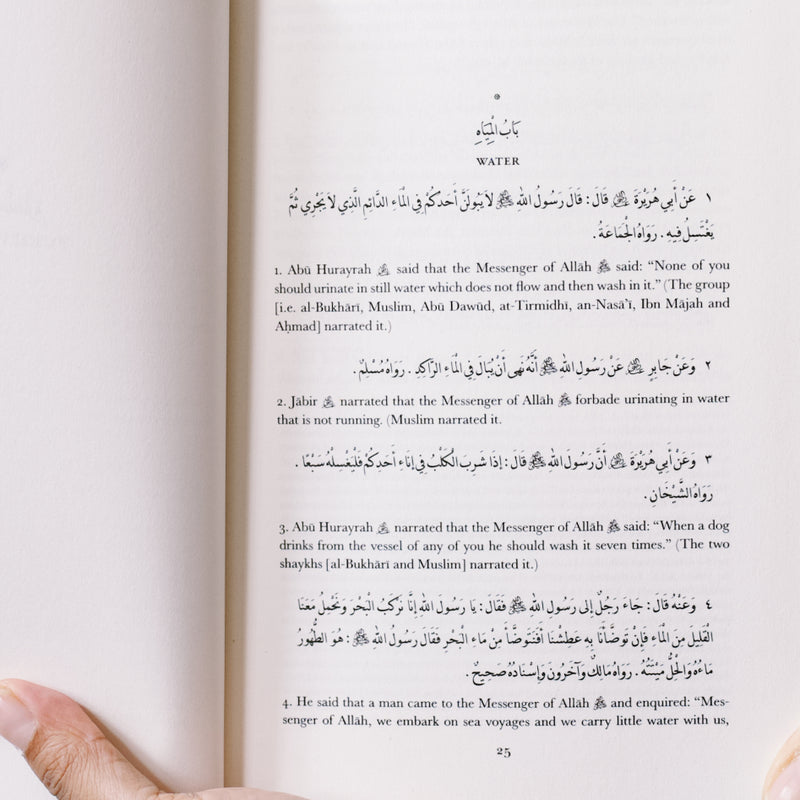 بَابُ الْمِيَاهِ
WATER
١ عَنْ أَبِي هُرَيْرَةَ ﷺ قَالَ : قَالَ رَسُولُ اللهِ ﷺ لاَ يَبُولَنَّ أَحَدُكُمْ فِي الْمَاءِ الدَّائِمِ الَّذِي لاَ يَجْرِي ثُمَّ
يَغْتَسِلُ فِيهِ . رَوَاهُ الْجَمَاعَةُ .
1. Abū Hurayrah said that the Messenger of Allāh ﷺ said: “None of you
should urinate in still water which does not flow and then wash in it.” (The group
[i.e. al-Bukhārī, Muslim, Abū Dawūd, at-Tirmidhī, an-Nasā’ī, Ibn Mājah and
Aḥmad] narrated it.)
٢ وَعَنْ جَابِرٍ عَنْ رَسُولِ اللهِ ﷺ أَنَّهُ نَهَى أَنْ يُبَالَ فِي الْمَاءِ الرَّاكِدِ . رَوَاهُ مُسْلِمٌ .
2. Jābir narrated that the Messenger of Allāh ﷺ forbade urinating in water
that is not running. (Muslim narrated it.
٣ وَعَنْ أَبِي هُرَيْرَةَ أَنَّ رَسُولَ اللهِ ﷺ قَالَ : إِذَا شَرِبَ الْكَلْبُ فِي إِنَاءِ أَحَدِكُمْ فَلْيَغْسِلْهُ سَبْعًا .
رَوَاهُ الشَّيْخَانِ .
3. Abū Hurayrah narrated that the Messenger of Allāh ﷺ said: “When a dog
drinks from the vessel of any of you he should wash it seven times.” (The two
shaykhs [al-Bukhārī and Muslim] narrated it.)
٤ وَعَنْهُ قَالَ : جَاءَ رَجُلٌ إِلَى رَسُولِ اللهِ ﷺ فَقَالَ : يَا رَسُولَ اللهِ إِنَّا نَرْكَبُ الْبَحْرَ وَنَحْمِلُ مَعَنَا
الْقَلِيلَ مِنَ الْمَاءِ فَإِنْ تَوَضَّأْنَا بِهِ عَطِشْنَا أَفَنَتَوَضَّأُ مِنْ مَاءِ الْبَحْرِ فَقَالَ رَسُولُ اللهِ ﷺ : هُوَ الطَّهُورُ
مَاءُهُ وَالْحِلُّ مَيْتَتُهُ . رَوَاهُ مَالِكٌ وَآخَرُونَ وَإِسْنَادُهُ صَحِيحٌ .
4. He said that a man came to the Messenger of Allāh ﷺ and enquired: “Mes-
senger of Allāh, we embark on sea voyages and we carry little water with us,
25